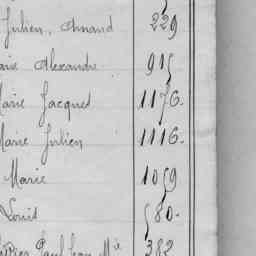 Julien, Armand 229
Marie Alexandre 915
Marie Jacques 1176.
Marie Julien 1116.
Marie 1059
Louis 580.
Paul Jean Mie 382